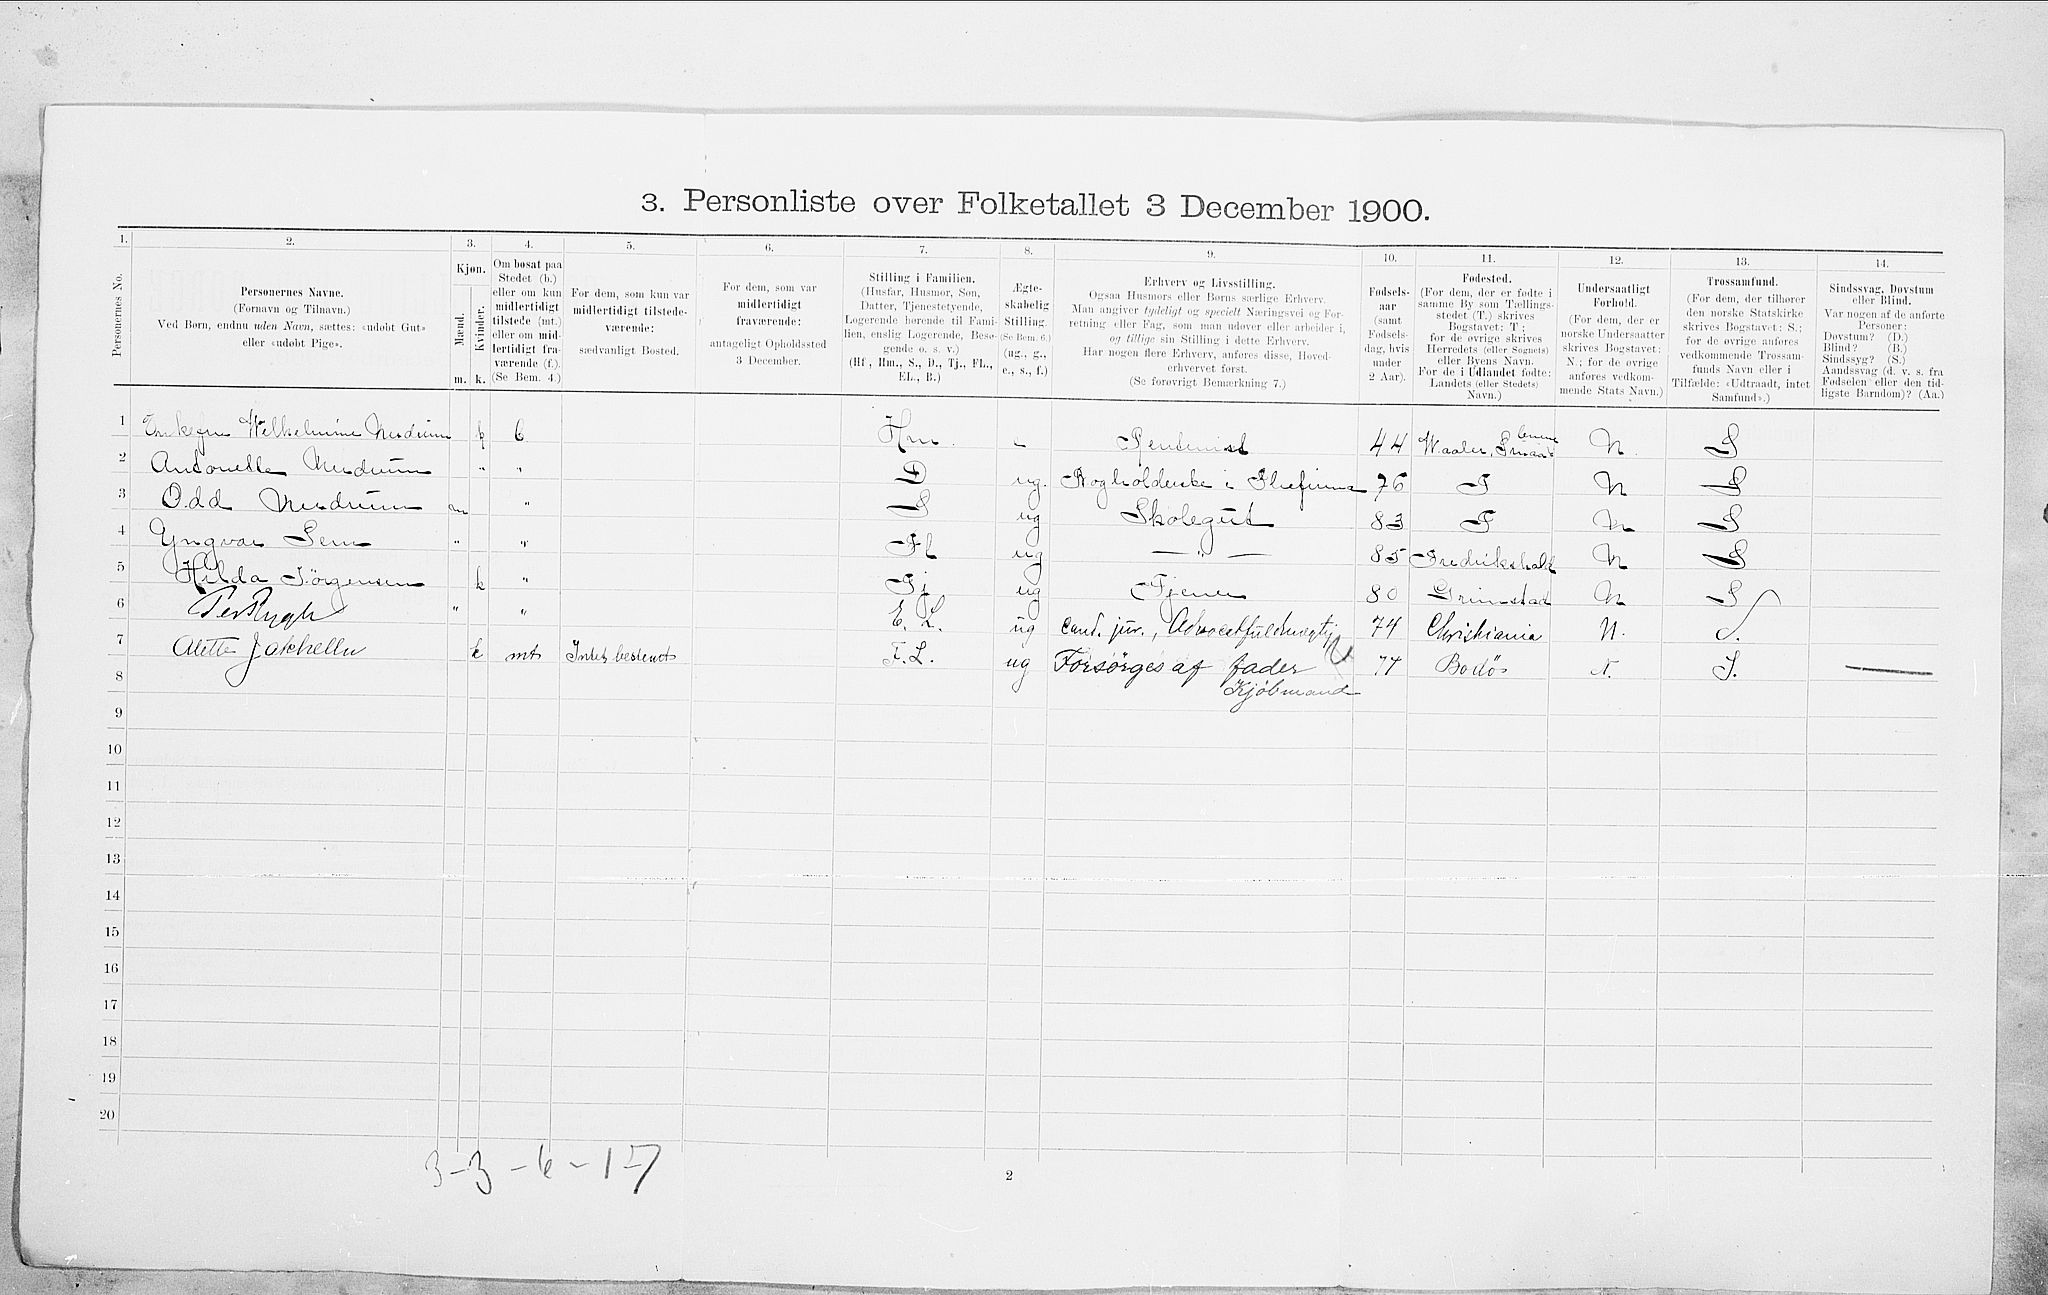 3. Personliste over Folketallet 3 December 1900.
1. 2. 3. 4. 5. 6. 7. 8. 9. 10. 11. 12. 13. 14.
Personernes No.
Personernes Navne.
(Fornavn og Tilnavn.)
Ved Børn, endnu uden Navn, sættes: «udøbt Gut»
eller «udøbt Pige».
Kjøn.
Mænd.
Kvinder.
m. k.
Om bosat paa
Stedet (b.)
eller om kun
midlertidigt
tilstede (mt.)
eller om mid-
lertidigt fra-
værende (f.).
(Se Bem. 4.)
For dem, som kun var
midlertidigt tilstede-
værende:
sædvanligt Bosted.
For dem, som var
midlertidigt
fraværende:
antageligt Opholdssted
3 December.
Stilling i Familien.
(Husfar, Husmor, Søn,
Datter, Tjenestetyende,
Logerende hørende til Fami-
lien, enslig Logerende, Besø-
gende o. s. v.)
(Hf, Hm., S., D., Tj., FL.,
EL., B.)
Ægte-
skabelig
Stilling.
(Se Bem. 6.)
(ug., g.,
e., s., f.)
Erhverv og Livsstilling.
Ogsaa Husmors eller Børns særlige Erhverv.
Man angiver tydeligt og specielt Næringsvei og For-
retning eller Fag, som man udøver eller arbeider i,
og tillige sin Stilling i dette Erhverv.
Har nogen flere Erhverv, anføres disse, Hoved-
erhvervet først.
(Se forøvrigt Bemerkning 7.)
Fødsels-
aar
(samt
Fødsels-
dag, hvis
under
2 Aar).
Fødested.
(For dem, der er fødte i
samme By som Tællings-
stedet (T.) skrives
Bogstavet: T;
for de øvrige skrives
Herredets (eller Sognets)
eller Byens Navn.
For de i Udlandet fødte:
Landets (eller Stedets)
Navn.)
Undersaatligt
Forhold.
(For dem, der er
norske Undersaatter
skrives Bogstavet:
N.; for de øvrige
anføres vedkom-
mende Stats Navn.)
Trossamfund.
(For dem, der tilhører
den norske Statskirke
skrives Bogstavet: S.;
for de øvrige anføres
vedkommende Trossam-
funds Navn eller i
Tilfælde: «Udtraadt, intet
Samfund».)
Sindssvag, Døvstum
eller Blind.
Var nogen af de anførte
Personer:
Døvstum? (D.)
Blind? (B.)
Sindssyg? (S.)
Aandssvag (d. v. s. fra
Fødselen eller den tid-
ligste Barndom)? (Aa.)
1 Enkefru Wilhelmine Mesdrum k b Hm. e Rentenist 44 Waaler, Smaalenene N. S
2 Antonette Mesdrum " " D ug. Bogholderske i 76 T N S
3 Odd Mesdrum m " S ug Skolegut 83 T N S
4 Yngvar Sem " " Fl ug — " — 85 Fredrikshald N S
5 Hilda Jörgensen k " Tj ug Tjener 80 Grimstad N S
6 Per Rygh " " E. L. ug cand. jur., Advocatfuldmægtig 74 Christiania N. S.
7 Alette Jakhelln k mt Intet bestemt F. L. ug Forsörges af fader 77 Bodö N. S.
8 Kjöbmand
9
10
11
12
13
14
15
16
17
18
19
20
3-3-6-1-7
2